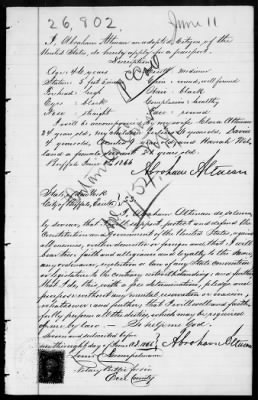 26,802. June 11
I, Abraham Altman an adopted Citizen of the
United States, do hereby apply for a passport.
Description
Age: 46 years Mouth: medium
Stature: 5 feet Chin: round, well formed
Forehead: high Hair: black
Eyes: black Complexion: healthy
Nose: straight Face: round
I will be accompanied by my wife Clara Altman
34 years old, my children years, David
4 years old, 9 years and Hannah
land a female 24 years old.
Buffalo June 8, 1866
Abraham Altman
State of New York
City of Buffalo, County
I, Abraham Altman do solemn-
ly swear, that I will support, protect and defend the
Constitution and Government of the United States, against
all enemies, whether domestic or foreign and that I will
bear true faith and allegiance and loyalty to the same,
any ordinance, resolution or law of any State Convention
or legislature to the contrary notwithstanding; and further
that I do, this, with a free determination, pledge and
purpose without any mental reservation or evasion
whatsoever and, further, that I will well and faith-
fully perform all the duties, which may be required
of me by law. — So help me God.
Sworn and subscribed before
me this eight day of June AD. 1866 Abraham Altman
Notary Public for in
Erie County